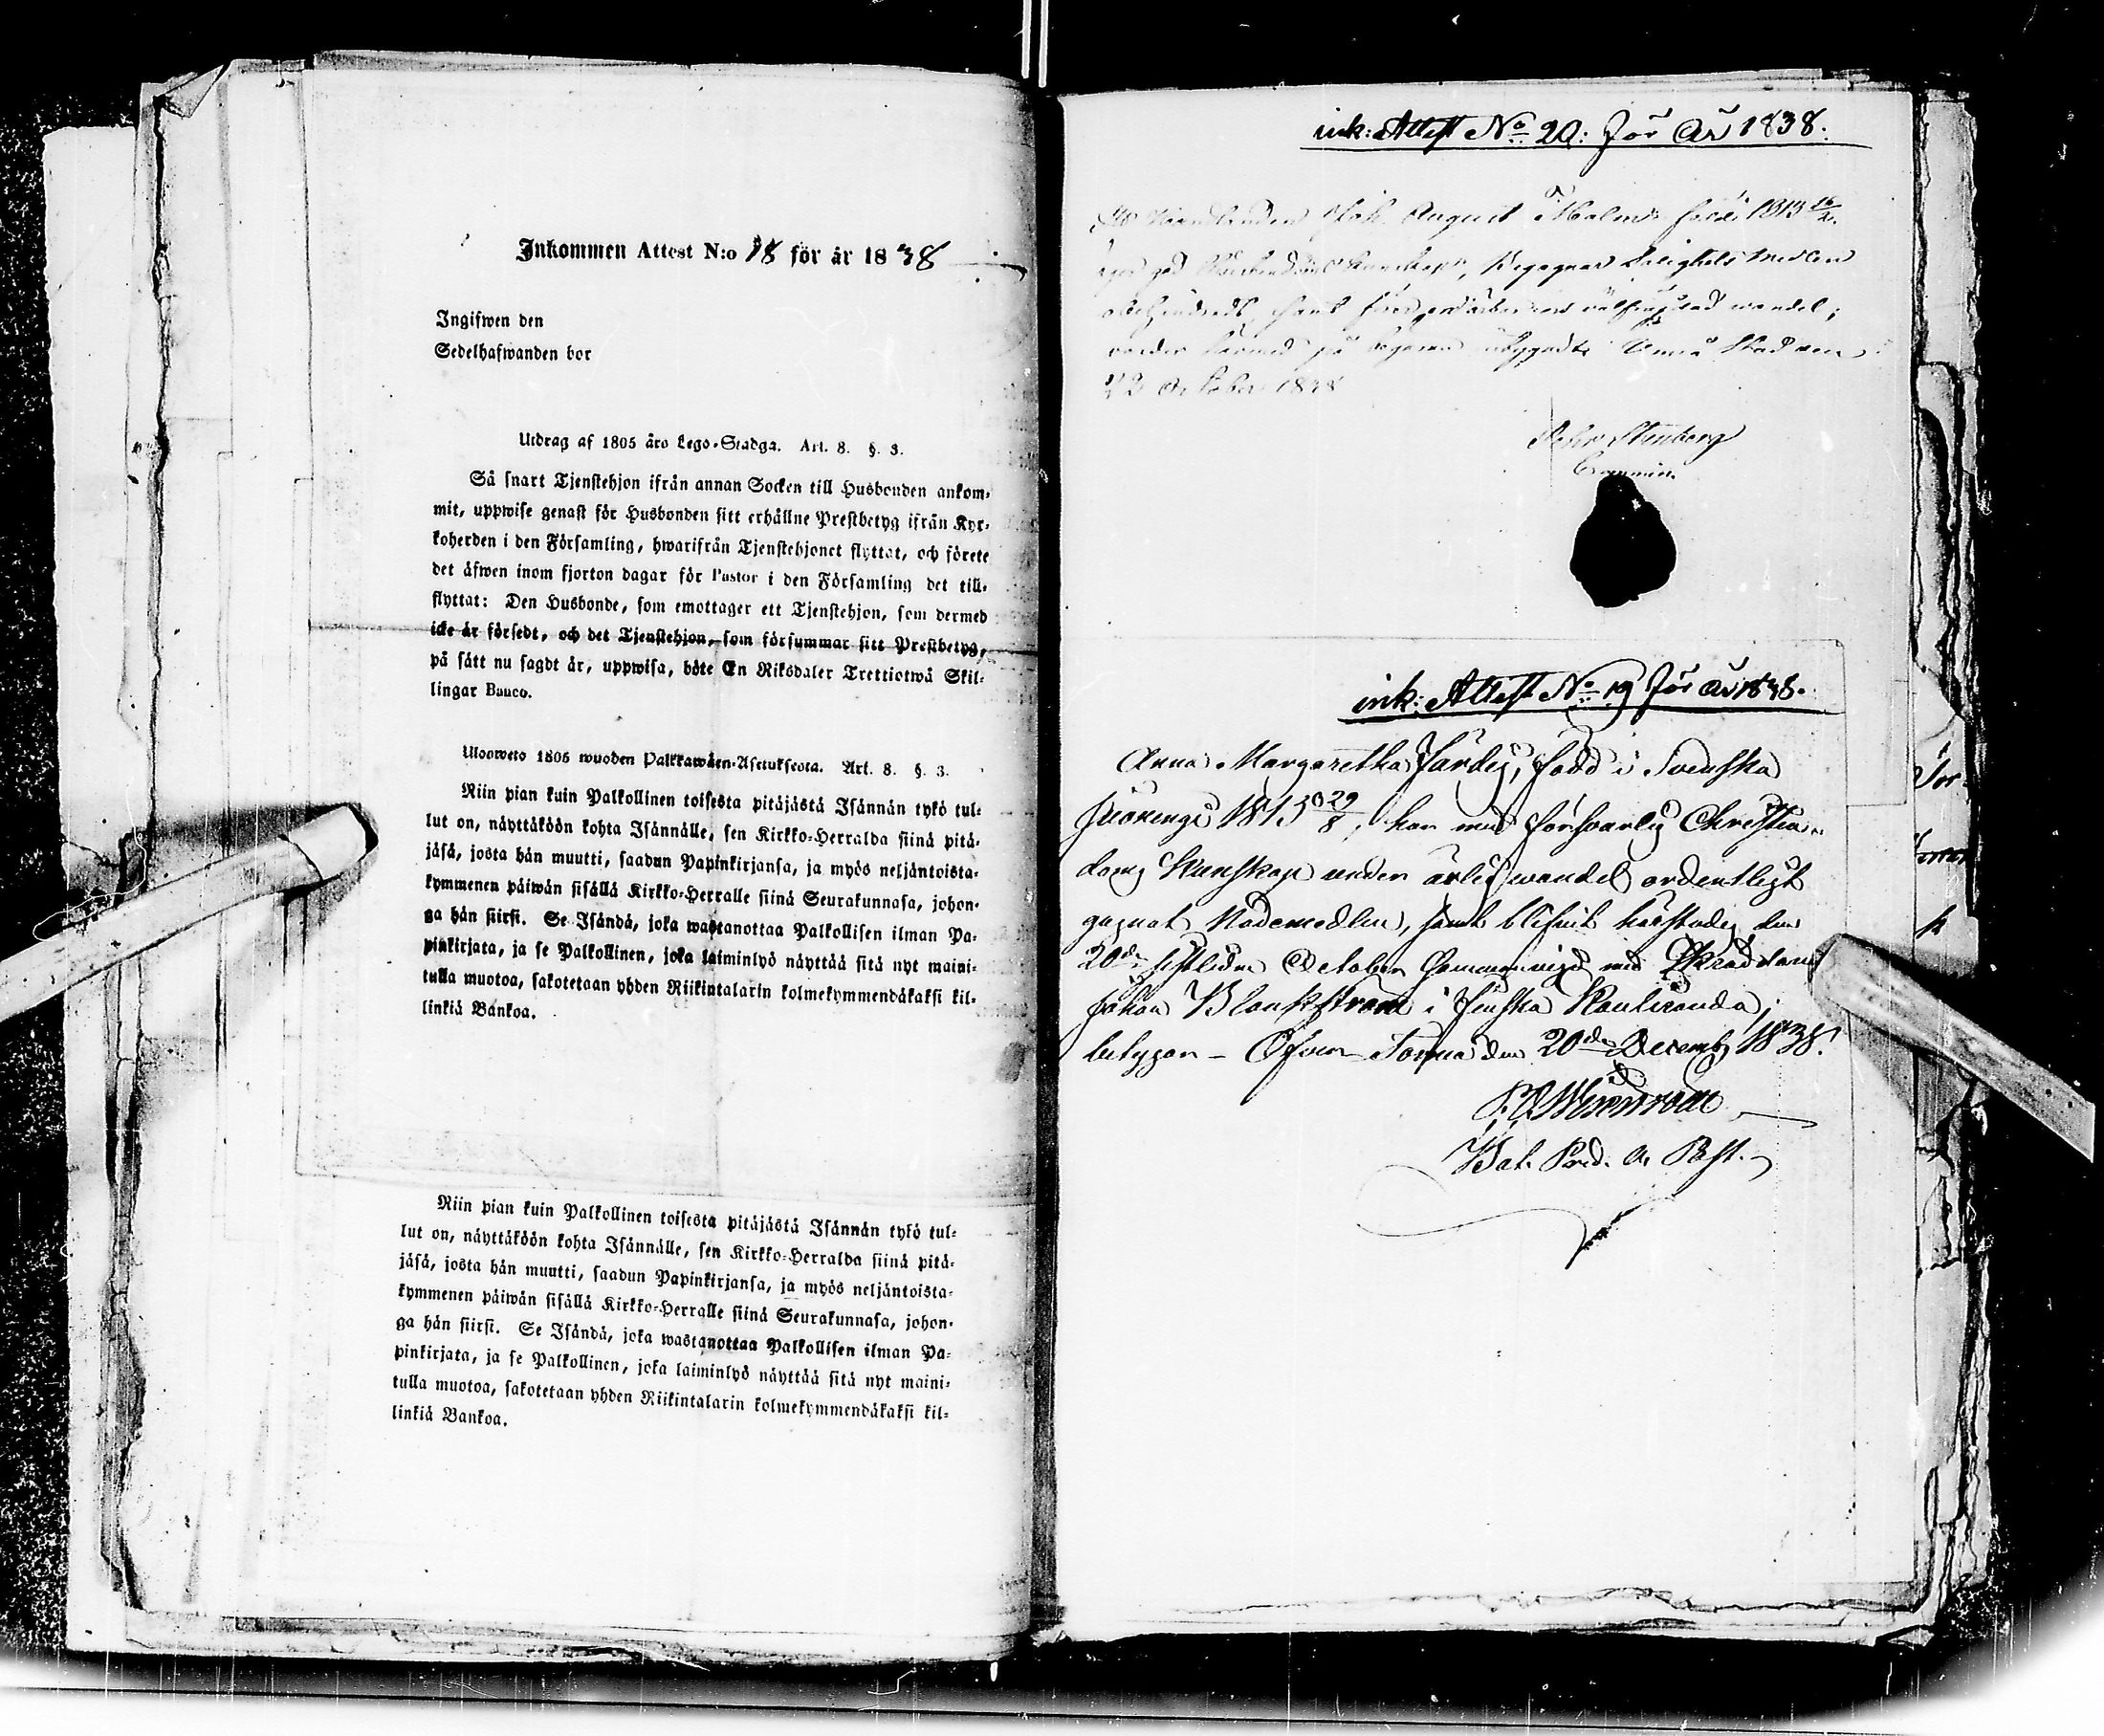 Inkommen Attest N:o 18 för år 1838
Ingifwen den
Sedelhafwanden bor
Utdrag af 1805 års Lego-Stadga. Art. 8. §. 3.
Så snart Tjenstehjon ifrån annan Socken till Husbonden ankom-
mit, uppwise genast för Husbonden sitt erhållne Prestbetyg ifrån Kyr-
koherden i den Församling, hwarifrån Tjenstehjonet flyttat, och förete
det äfwen inom fjorton dagar för Pastor i den Församling det till-
flyttat: Den Husbonde, som emottager ett Tjenstehjon, som dermed
icke är försedt, och det Tjenstehjon, som försummar sitt Prestbetyg,
på sätt nu sagdt är, uppwisa, böte En Riksdaler Trettiotwå Skil-
lingar Banco.
Uloosweto 1805 wuoden Palkkawäen-Asetuksesta. Art. 8. §. 3.
Niin pian kuin Palkollinen toisesta pitäjästä Isännän tykö tul-
lut on, näyttäköön kohta Isännälle, sen Kirkko-Herralda siinä pitä-
jäsä, josta hän muutti, saadun Papinkirjansa, ja myös neljäntoista-
kymmenen päiwän sisällä Kirkko-Herralle siinä Seurakunnasa, johon-
ga hän siirsi. Se Isändä, joka wastanottaa Palkollisen ilman Pa-
pinkirjata, ja se Palkollinen, joka laiminlyö näyttää sitä nyt maini-
tulla muotoa, sakotetaan yhden Riikintalarin kolmekymmendäkaksi kil-
linkiä Bankoa.
Niin pian kuin Palkollinen toisesta pitäjästä Isännän tykö tul-
lut on, näyttäköön kohta Isännälle, sen Kirkko-Herralda siinä pitä-
jäsä, josta hän muutti, saadun Papinkirjansa, ja myös neljäntoista-
kymmenen päiwän sisällä Kirkko-Herralle siinä Seurakunnasa, johon-
ga hän siirsi. Se Isändä, joka wastanottaa Palkollisen ilman Pa-
pinkirjata, ja se Palkollinen, joka laiminlyö näyttää sitä nyt maini-
tulla muotoa, sakotetaan yhden Riikintalarin kolmekymmendäkaksi kil-
linkiä Bankoa.
ink: Attest No 20: för år 1838.
Joh. August Malm född 1813 16/2
äger god Christendoms kunskap, begagnar Salighets medlen
obehindradt, samt wandel;
warder härmed på begäran Umeå Stad den
22 October 1838
Pehr Stenberg
ink: Attest No 19 för år 1838.
Anna Margaretha Färdig, född i Svenska
1813 29/8, har med försvarlig Christen-
doms Kunskap under ärlig wandel ordentligt
gagnat Nådemedlen, samt blifvit härstädes den
20de sistledne October Sammanvigd med Skräddaren
Johan Blankström i Finska Kauliranda,
betygar - Öfver Torneå den 20de Decemb 1838.
Bat. Pred. a. Past.